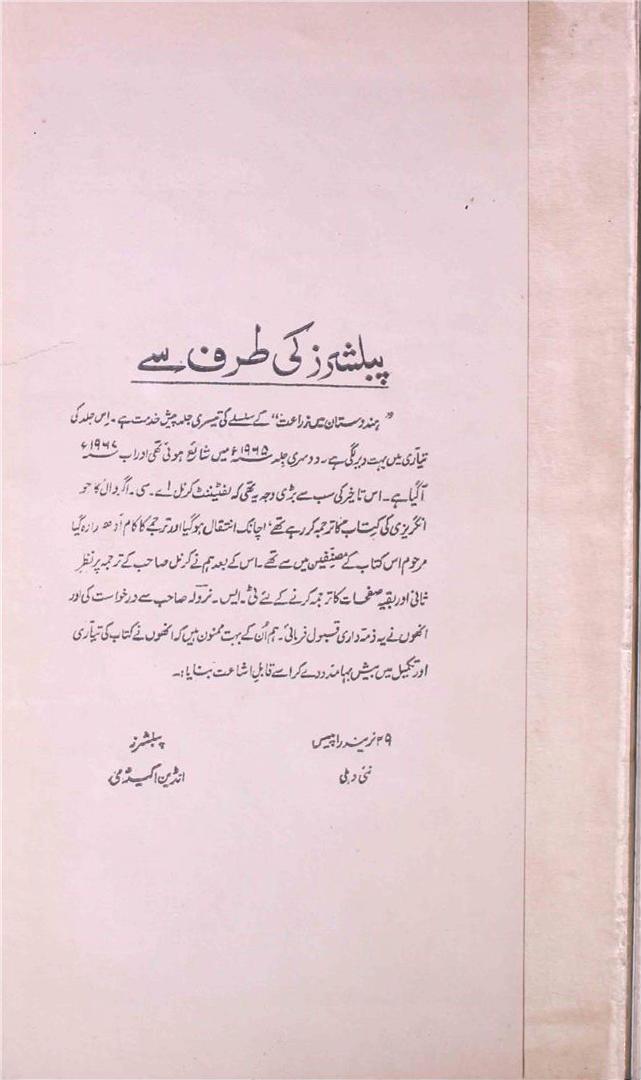 پبلشرز کی طرف سے
"ہندوستان میں زراعت" کے سلسلے کی تیسری جلد پیش خدمت ہے۔ اِس جلد کی
تیاری میں بہت دیر لگی ہے۔ دوسری جلد ۱۹۶۵ء میں شائع ہوئی تھی اور اب ۱۹۶۷ء
آگیا ہے۔ اس تاخیر کی سب سے بڑی وجہ یہ تھی کہ لفٹیننٹ کرنل اے۔ سی۔ اگروال کا جو
انگریزی کی کتاب کا ترجمہ کر رہے تھے اچانک انتقال ہوگیا اور ترجمے کا کام ادھورا رہ گیا
مرحوم اس کتاب کے مصنّفین میں سے تھے۔ اس کے بعد ہم نے کرنل صاحب کے ترجمہ پر نظر
ثانی اور بقیہ صفحات کا ترجمہ کرنے کے لئے ٹی۔ ایس۔ نرولہ صاحب سے درخواست کی اور
انھوں نے یہ ذمّہ داری قبول فرمائی۔ ہم اُن کے بہت ممنون ہیں کہ انھوں نے کتاب کی تیاری
اور تکمیل میں بیش بہا مدد دے کر اسے قابلِ اشاعت بنایا:۔
۲۹ نریندرا پلیس پبلشرز
نئی دہلی انڈین اکیڈمی